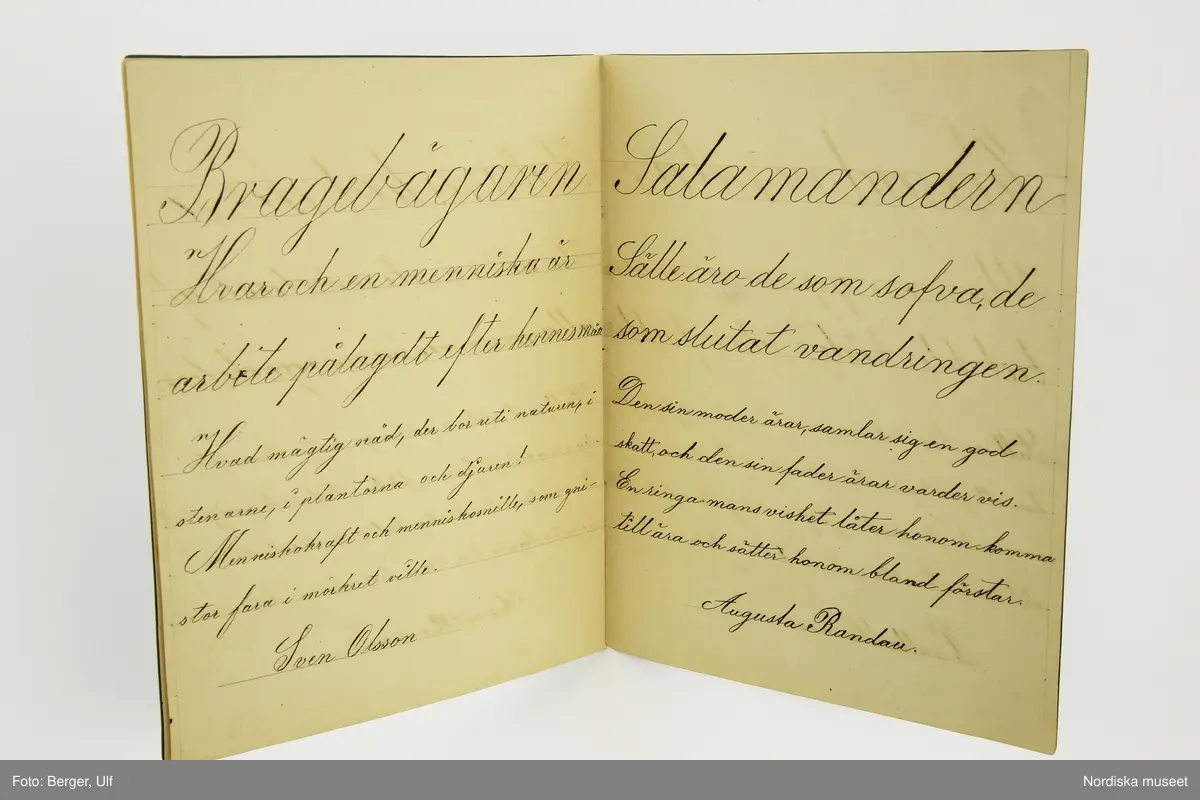 Bragebägaren
Hvar och en menniska är
arbete pålagdt efter hennes mån
Hvad mägtig nåd, der bor uti naturen, i
stenarne, i plantorna och djuren!
Menniskokraft och menniskosnille, som gni-
stor fara i mörkret ville.
Sven Olsson
Salamandern
Sälle äro de som sofva, de
som slutat vandringen.
Den sin moder ärar, samlar sig en god
skatt, och den sin fader ärar varder vis.
En ringa mans vishet låter honom komma
till ära och sätter honom bland förstar.
Augusta Randau.
Foto: Berger, Ulf
Nordiska museet